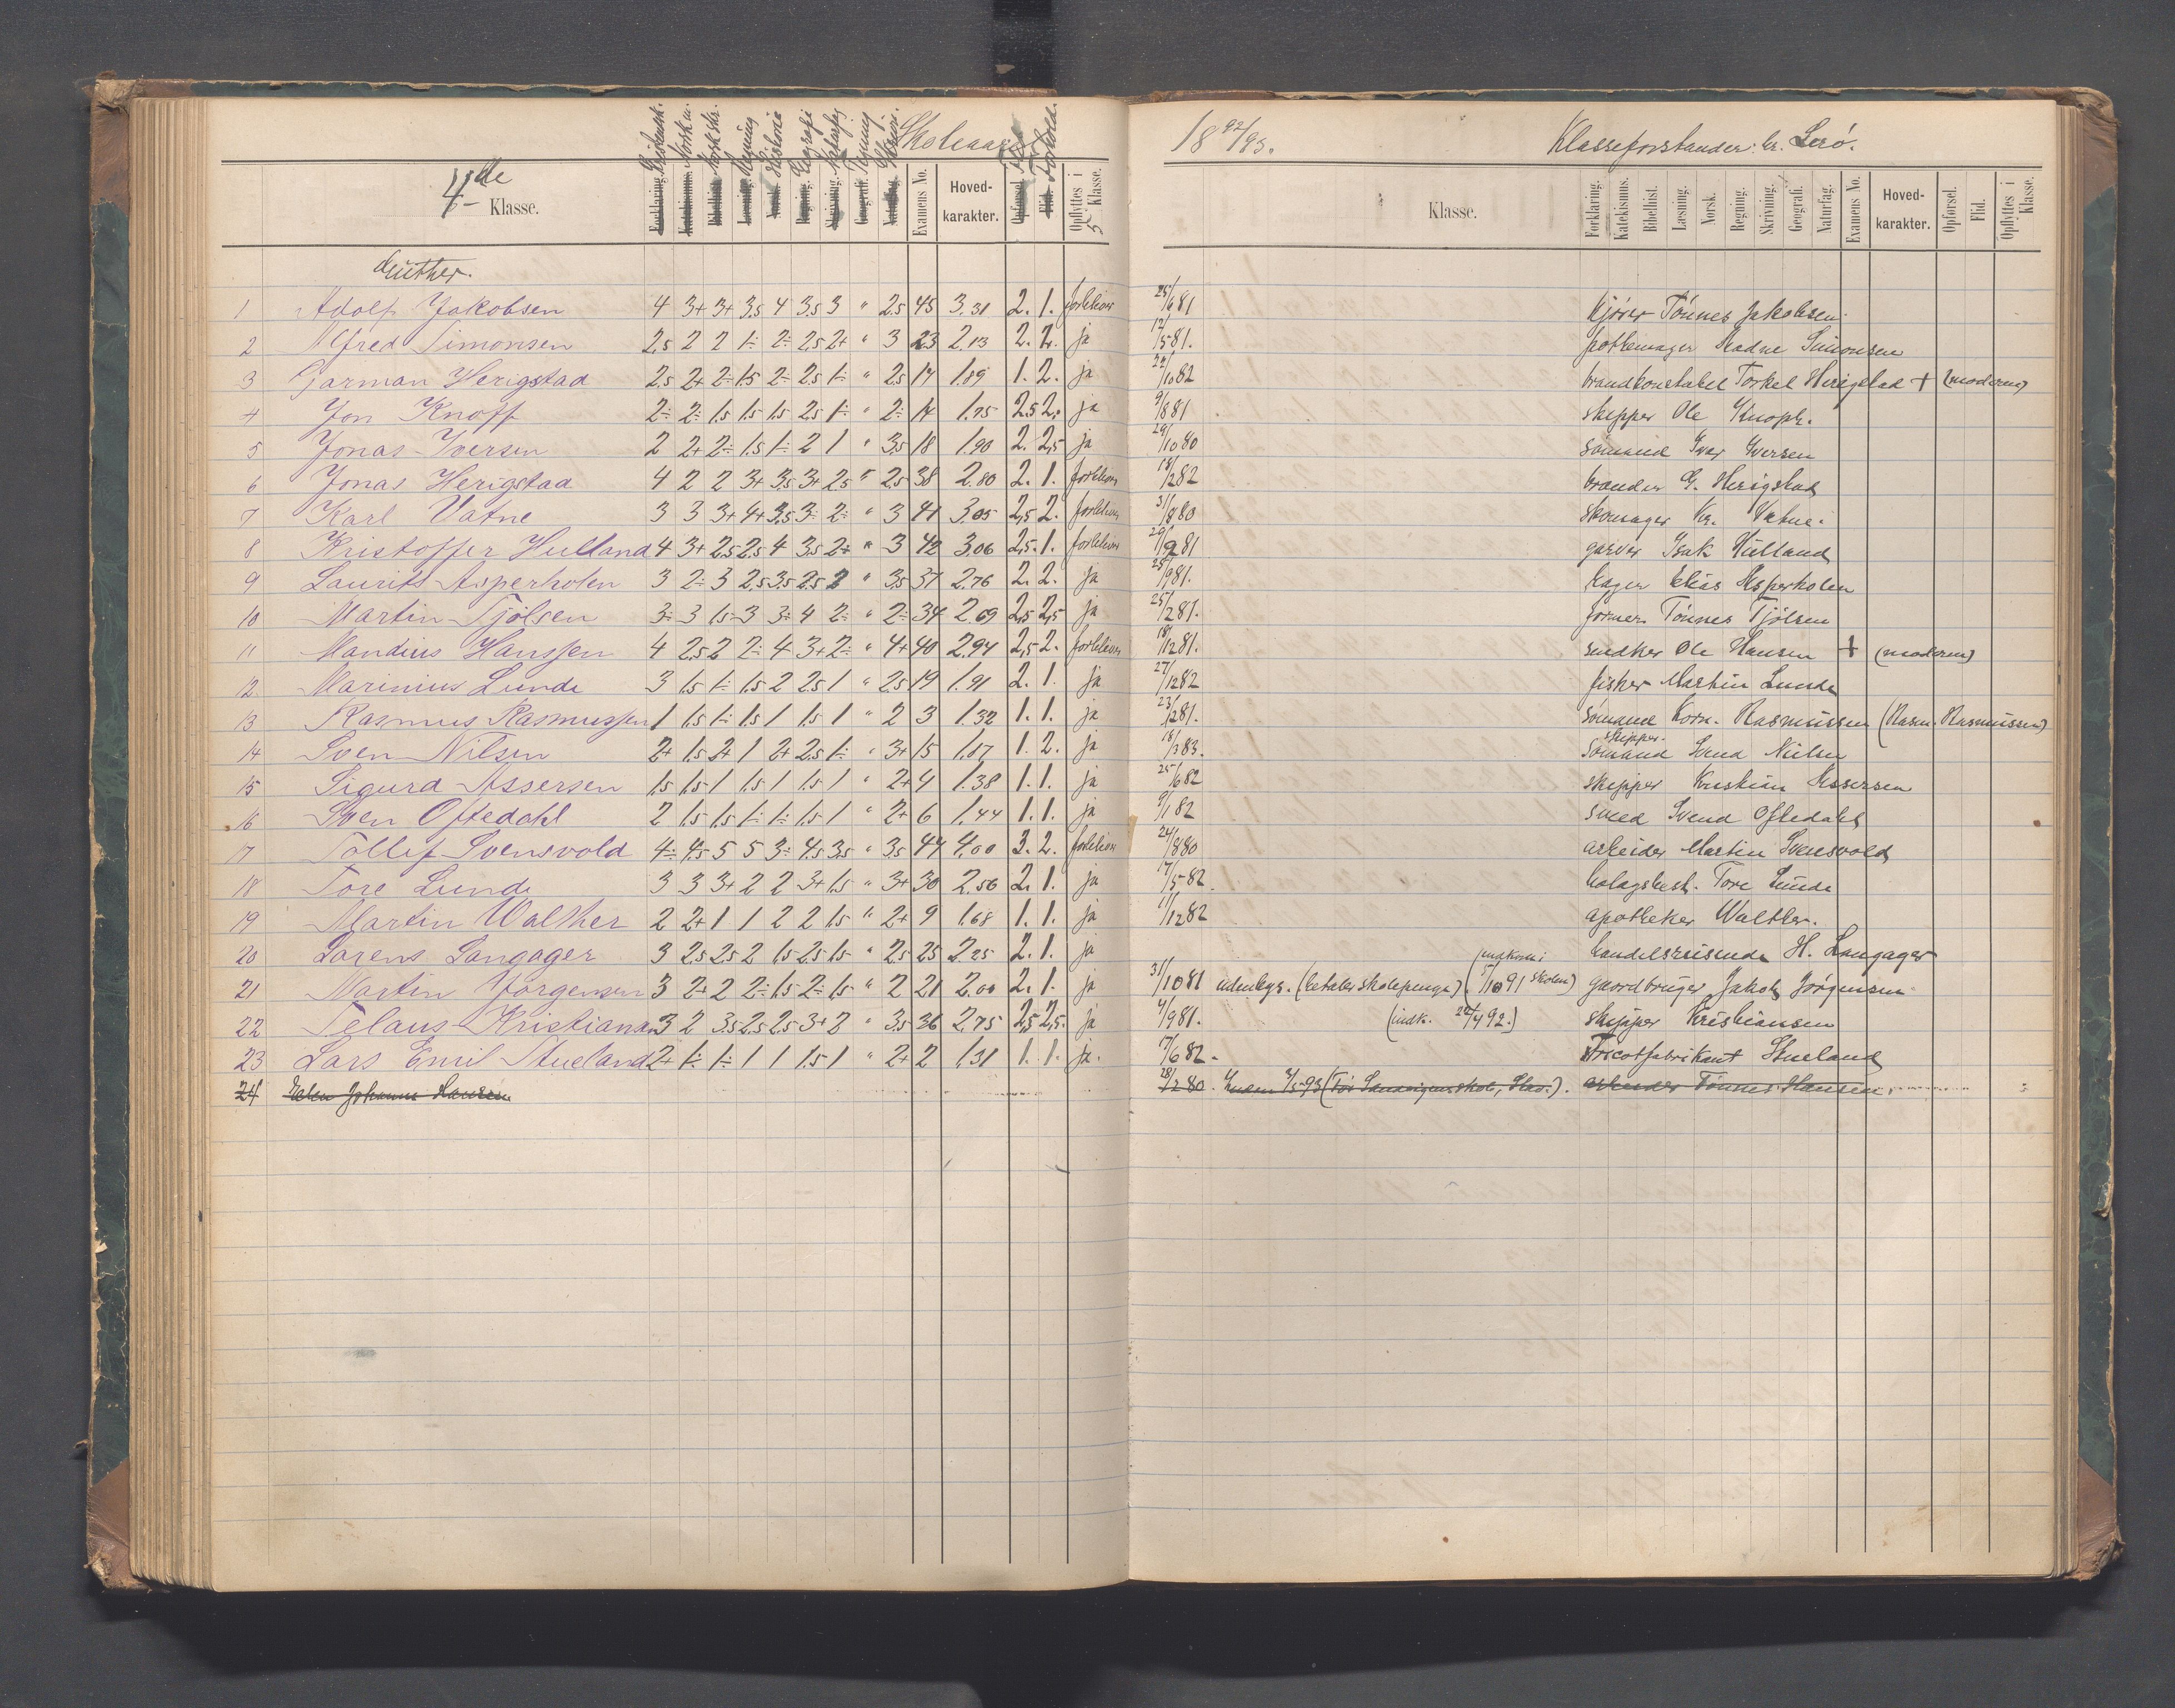 Skoleaar 1892/93. Klasseforstander: hr. Lerø.
4de Klasse.
Kristendk. Norsk m. Norsk skr. Regning Historie Geografi Naturfag Tegning Skrivn. Flid Forhold.
Forklaring. Katekismus. Bibelhist. Læsning. Norsk. Regning. Skrivning. Geografi. Naturfag. Examens No. Hoved-karakter. Opførsel. Flid. Opflyttes i 5 Klasse.
Klasse. Forklaring. Katekismus. Bibelhist. Læsning. Norsk. Regning. Skrivning. Geografi. Naturfag. Examens No. Hoved-karakter. Opførsel. Flid. Opflyttes i Klasse.
Gutter.
1 Adolf Jakobsen 4 3+ 3+ 3,5 4 3,5 3 " 2,5 45 3.31 2. 1. forbliver 25/6 81 kjører Tønnes Jakobsen
2 Alfred Simonsen 2,5 2 2 1÷ 2÷ 2,5 2+ " 3 23 2.13 2. 2. ja 12/5 81. Simonsen
3 Garman Herigstad 2,5 2+ 2÷ 1,5 2÷ 2,5 1÷ " 2,5 17 1.89 1. 2. ja 22/10 82 brandkonstabel Torkel Herigstad + (moderen)
4 Jon Knoff 2÷ 2÷ 1,5 1,5 1,5 2,5 1÷ " 2÷ 14 1.75 2,5 2. ja 9/8 81 skipper Ole Knoph.
5 Jonas Iversen 2 2+ 2÷ 1,5 1÷ 2 1 " 3,5 18 1.90 2. 2,5 ja 29/10 80 sømand Ivar Iversen
6 Jonas Herigstad 4 2 2 3+ 3,5 3+ 2,5 " 2,5 38 2.80 2. 1. forbliver 18/2 82 G. Herigstad
7 Karl Vatne 3 3 3+ 4+ 3,5 3÷ 2÷ " 3 41 3.05 2,5 2. forbliver 31/8 80 skomager Kr. Vatne.
8 Kristoffer Hulland 4 3+ 2,5 2,5 4 3,5 2+ " 3 42 3.06 2,5. 1. forbliver 20/9 81 garver Isak Hulland
9 Laurits Asperholen 3 2÷ 3 2,5 3,5 2,5 2 " 3,5 37 2.76 2. 2. ja 25/9 81. bager Elias Asperholen
10 Martin Tjølsen 3÷ 3 1,5 3 3÷ 4 2÷ " 2÷ 34 2.69 2,5 2,5 ja 25/2 81. former Tønnes Tjølsen
11 Mandius Hanssen 4 2,5 2 2÷ 4 3+ 2÷ " 4+ 40 2.94 2,5 2. forbliver 18/12 81. snedker Ole Hansen + (moderen)
12 Marinius Lunde 3 1,5 1÷ 1,5 2 2,5 1 " 2,5 19 1.91 2. 1. ja 27/12 82 fisker Martin Lunde
13 Rasmus Rasmussen 1 1,5 1÷ 1,5 1 1,5 1 " 2 3 1.32 1. 1. ja 23/2 81. sømand Korn. Rasmussen (Rasm. Rasmussen)
14 Sven Nilsen 2+ 1,5 2+ 1 2+ 2,5 1÷ " 3+ 15 1.87 1. 2. ja 18/3 83. skipper. sømand Svend Nilsen
15 Sigurd Assersen 1,5 1,5 1 1,5 1 1,5 1 " 2+ 4 1.38 1. 1. ja 25/6 82 skipper Kristian Assersen
16 Sven Oftedahl 2 1,5 1,5 1÷ 1÷ 1,5 1 " 2+ 6 1.44 1. 1. ja 9/1 82 smed Svend Oftedahl
17 Tollef Svensvold 4÷ 4,5 5 5 3÷ 4,5 3,5 " 3,5 47 4.00 3. 2. forbliver 24/8 80 arbeider Martin Svensvold
18 Tore Lunde 3 3 3+ 2 2 3+ 1,5 " 3+ 30 2.56 2. 1. ja 17/5 82. bolagsbest. Tore Lunde
19 Martin Walther 2 2+ 1 1 2 2 1,5 " 2+ 9 1.68 1. 1. ja 11/12 82 apotheker Walther.
20 Lorens Langager 3 2,5 2,5 2 1,5 2,5 1,5 " 2,5 25 2.25 2. 1. ja handelsreisende H. Langager
21 Martin Jørgensen 3 2+ 2 2÷ 1,5 2÷ 1,5 " 2 21 2.00 2. 1. ja 31/10 81 udenbys. (betaler skolepenge) (indkom i skolen) gaardbruger Jakob Jørgensen
22 Telaus Kristiansen 3 2 3,5 2,5 2,5 3+ 2 " 3,5 36 2.75 2,5 2,5. ja 4/9 81. (indk. 22/4 92.) skipper Kristiansen
23 Lars Emil Stueland 2+ 1÷ 1÷ 1 1 1,5 1 " 2+ 2 1.31 1. 1. ja. 17/6 82. tricotfabrikant Stueland
24 Johannes Hansen 28/2 80. (før Sandvigens skole, Stav.). arbeider Tønnes Hansen.